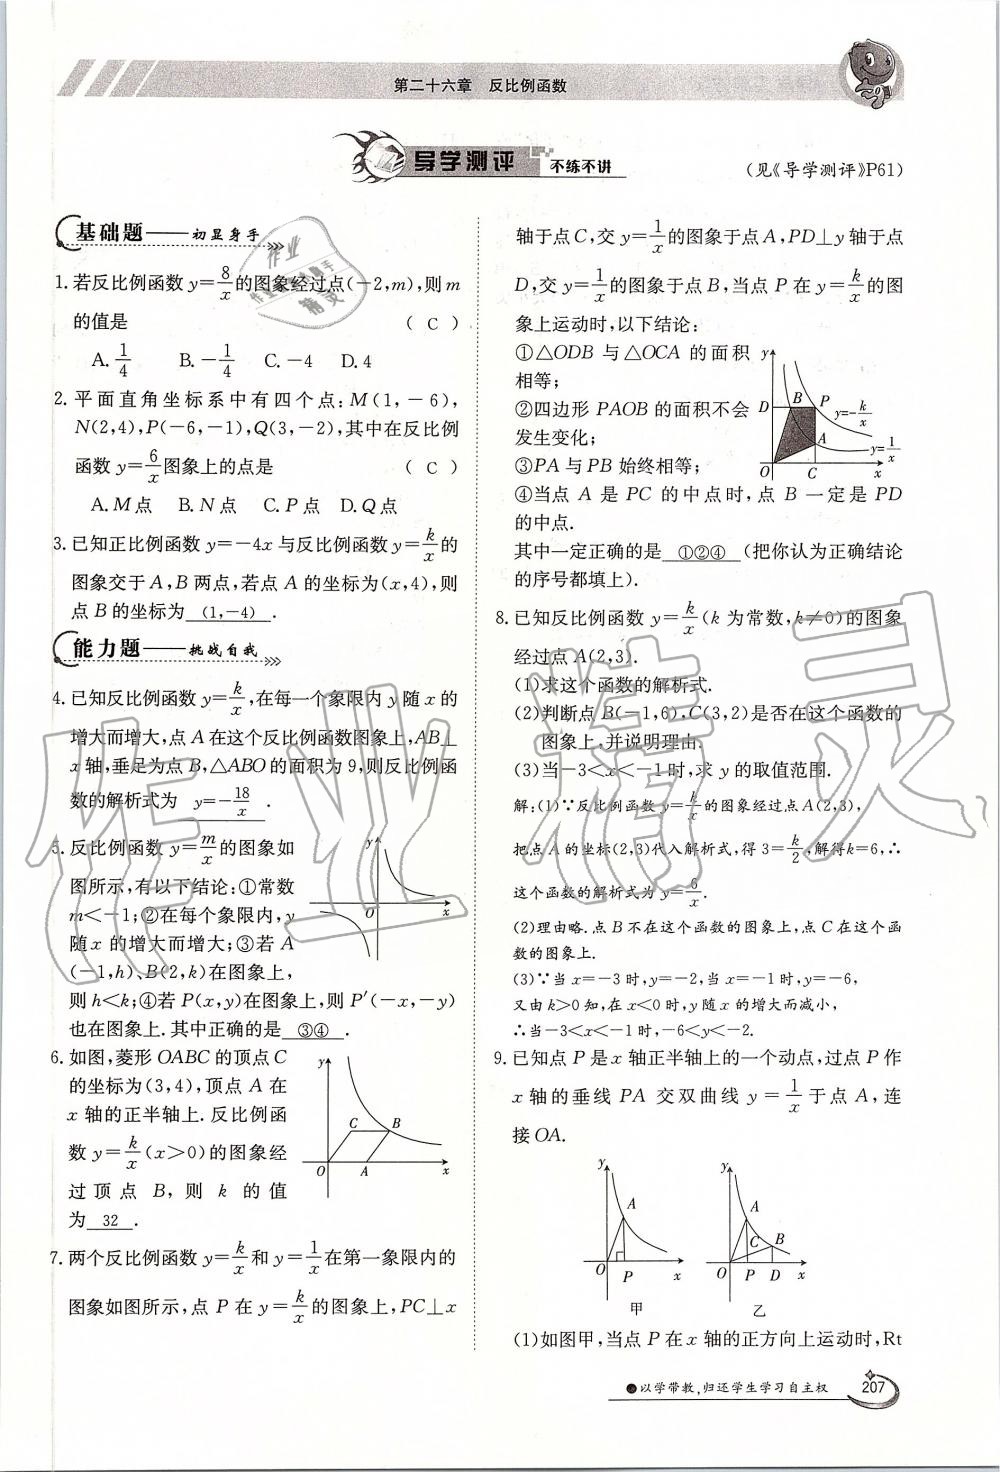 第二十六章 反比例函数
导学测评 不练不讲
(见《导学测评》P61)
基础题——初显身手
1. 若反比例函数 y=8/x 的图象经过点(-2,m),则 m
的值是 ( C )
A. 1/4 B. -1/4 C. -4 D. 4
2. 平面直角坐标系中有四个点:M(1,-6),
N(2,4),P(-6,-1),Q(3,-2),其中在反比例
函数 y=6/x 图象上的点是 ( C )
A. M点 B. N点 C. P点 D. Q点
3. 已知正比例函数 y=-4x 与反比例函数 y=k/x 的
图象交于 A,B 两点,若点 A 的坐标为(x,4),则
点 B 的坐标为 (1,-4) .
能力题——挑战自我
4. 已知反比例函数 y=k/x,在每一个象限内 y 随 x 的
增大而增大,点 A 在这个反比例函数图象上,AB⊥
x 轴,垂足为点 B,△ABO 的面积为 9,则反比例函
数的解析式为 y=-18/x .
5. 反比例函数 y=m/x 的图象如
图所示,有以下结论:①常数
m<-1;②在每个象限内,y
随 x 的增大而增大;③若 A
(-1,h),B(2,k)在图象上,
则 h<k;④若 P(x,y)在图象上,则 P′(-x,-y)
也在图象上.其中正确的是 ③④ .
y
O x
6. 如图,菱形 OABC 的顶点 C
的坐标为(3,4),顶点 A 在
x 轴的正半轴上.反比例函
数 y=k/x (x>0)的图象经
过顶点 B,则 k 的值
为 32 .
y
C B
O A x
7. 两个反比例函数 y=k/x 和 y=1/x 在第一象限内的
图象如图所示,点 P 在 y=k/x 的图象上,PC⊥x
轴于点 C,交 y=1/x 的图象于点 A,PD⊥y 轴于点
D,交 y=1/x 的图象于点 B,当点 P 在 y=k/x 的图
象上运动时,以下结论:
①△ODB 与△OCA 的面积
相等;
②四边形 PAOB 的面积不会
发生变化;
③PA 与 PB 始终相等;
④当点 A 是 PC 的中点时,点 B 一定是 PD
的中点.
其中一定正确的是 ①②④ (把你认为正确结论
的序号都填上).
y
D B P y=k/x
A y=1/x
O C x
8. 已知反比例函数 y=k/x (k 为常数,k≠0)的图象
经过点 A(2,3).
(1)求这个函数的解析式.
(2)判断点 B(-1,6),C(3,2)是否在这个函数的
图象上,并说明理由.
(3)当-3<x<-1 时,求 y 的取值范围.
解:(1)∵反比例函数 y=k/x 的图象经过点 A(2,3),
把点 A 的坐标(2,3)代入解析式,得 3=k/2,解得 k=6,∴
这个函数的解析式为 y=6/x.
(2)理由略.点 B 不在这个函数的图象上,点 C 在这个函
数的图象上.
(3)∵当 x=-3 时,y=-2,当 x=-1 时,y=-6,
又由 k>0 知,在 x<0 时,y 随 x 的增大而减小,
∴当-3<x<-1 时,-6<y<-2.
9. 已知点 P 是 x 轴正半轴上的一个动点,过点 P 作
x 轴的垂线 PA 交双曲线 y=1/x 于点 A,连
接 OA.
y
A
O P x
甲
y
A
C B
O P D x
乙
(1)如图甲,当点 P 在 x 轴的正方向上运动时,Rt
●以学带教,归还学生学习自主权
207
作业精灵